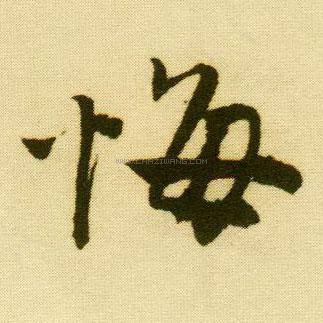 悔
WWW.CHAZIWANG.COM